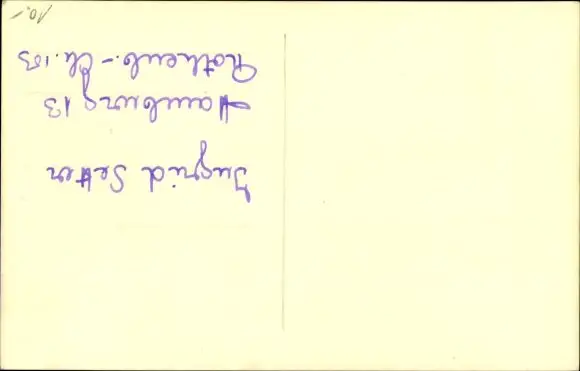 Ingrid Setter
Hamburg 13
Rothenb.-Ch. 103
10,-